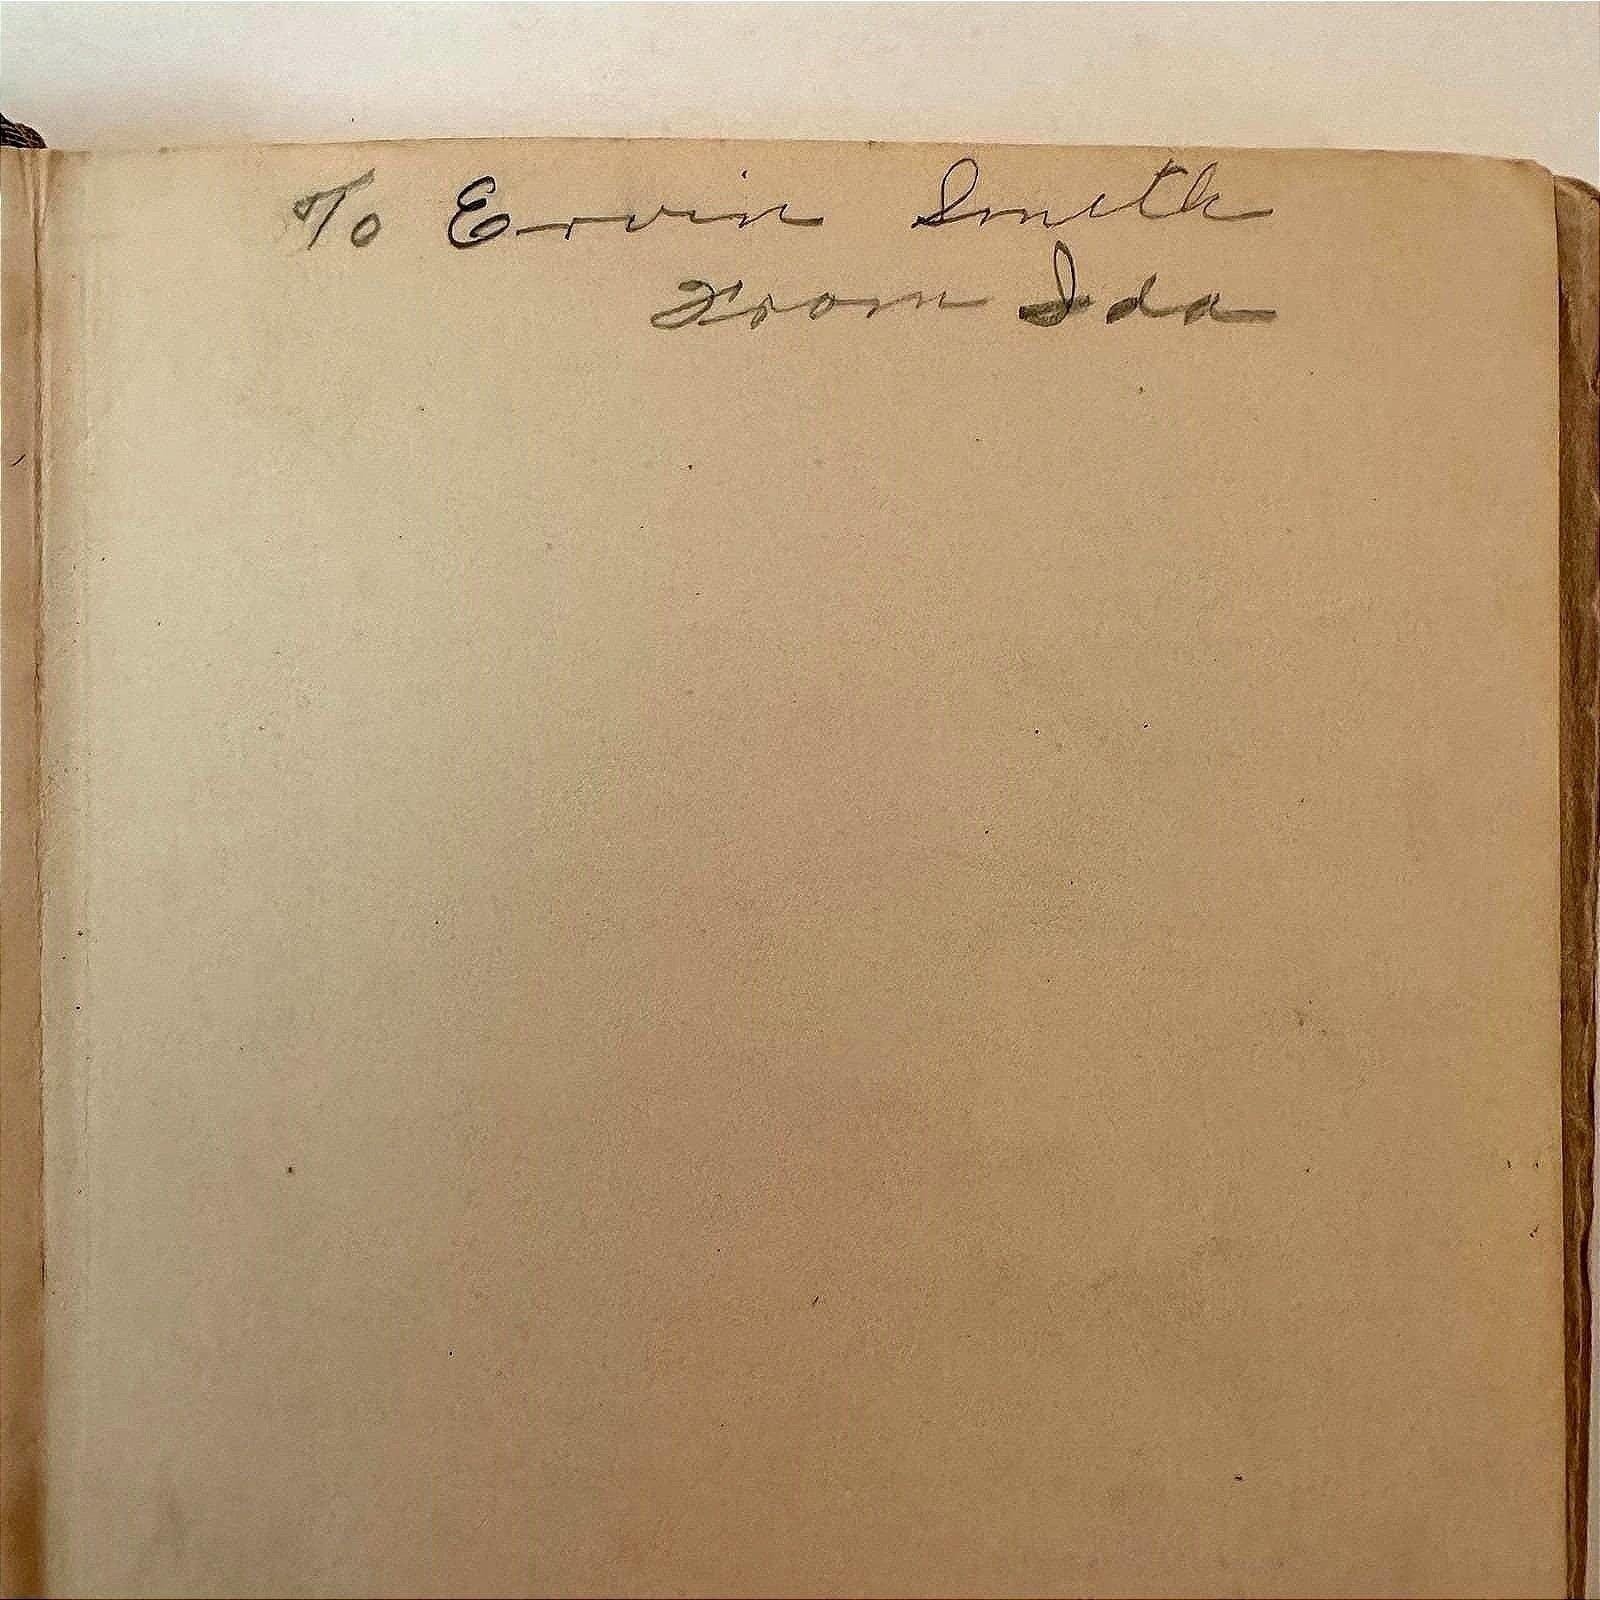 To Ervin Smith
From Ida